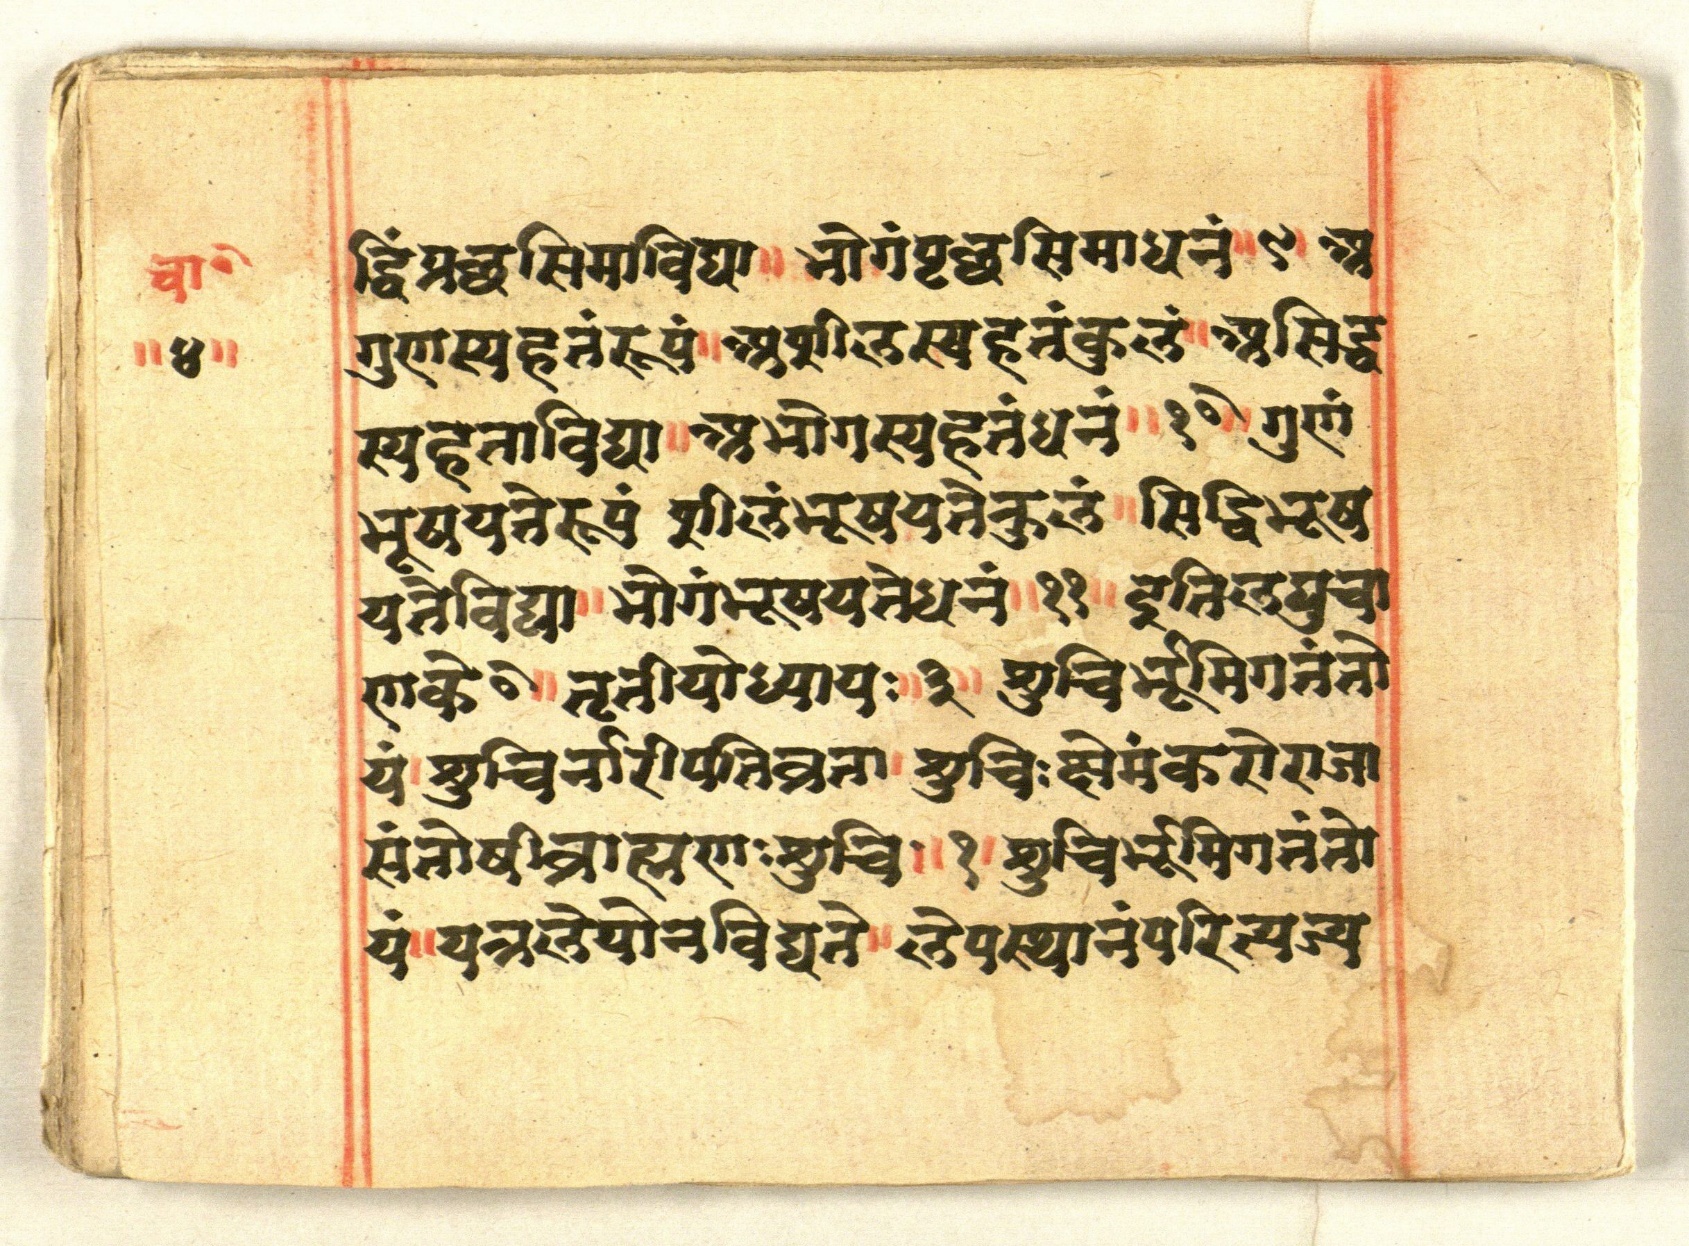 चा॰
॥४॥
द्धिंप्रछसिमाविद्या॥ भोगंपृछसिमाधनं॥९॥ अ
गुणस्यहतंरूपं॥अशीलस्यहतंकुलं॥असिद्ध
स्यहताविद्या॥अभोगस्यहतंधनं॥१०॥ गुणं
भूषयतेरूपं शीलंभूषयतेकुलं॥ सिद्धिभूष
यंतेविद्या॥ भोगंभूषयतेधनं॥११॥ इतिलघुचा
णके॰॥ तृतीयोध्यायः॥३॥ शुचिर्भूमिगतंतो
यं।शुचिर्नारीपतिव्रता। शुचिःक्षेमंकरोराजा
संतोषीब्राह्मणःशुचिः॥१। शुचिर्भूमिगतंतो
यं॥यत्रलेयोनविद्यते॥ लेपस्थानंपरित्यज्य